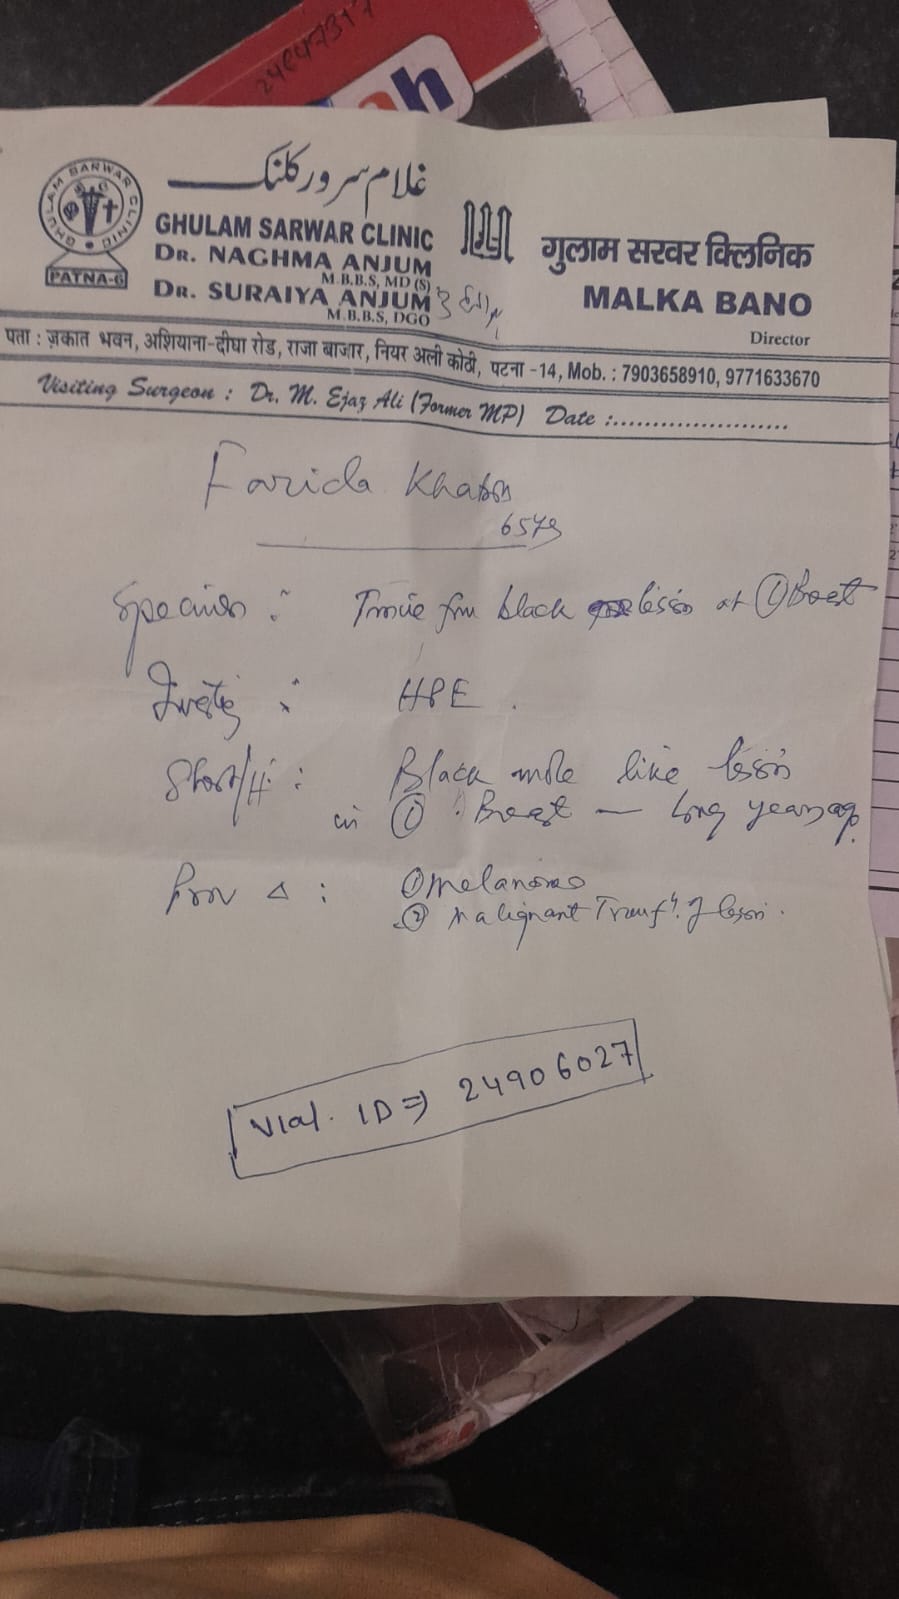 24047317
ah
غلام سرور کلنک
GHULAM SARWAR CLINIC
PATNA-6
GHULAM SARWAR CLINIC
DR. NAGHMA ANJUM
M.B.B.S, MD (S)
DR. SURAIYA ANJUM
M.B.B.S, DGO
गुलाम सरवर क्लिनिक
MALKA BANO
Director
पता : ज़कात भवन, अशियाना-दीघा रोड, राजा बाजार, नियर अली कोठी, पटना -14, Mob. : 7903658910, 9771633670
Visiting Surgeon : Dr. M. Ejaz Ali (Former MP) Date :......................
Farida Khatoon
Specimen : Tissue from black lesion at Breast
: HPE .
Short/H : Black mole like lesion
in Breast — long years ago.
Prov Δ : ① Melanoma
② Malignant Transfn. of lesion.
Vial. ID ⇒ 24906027